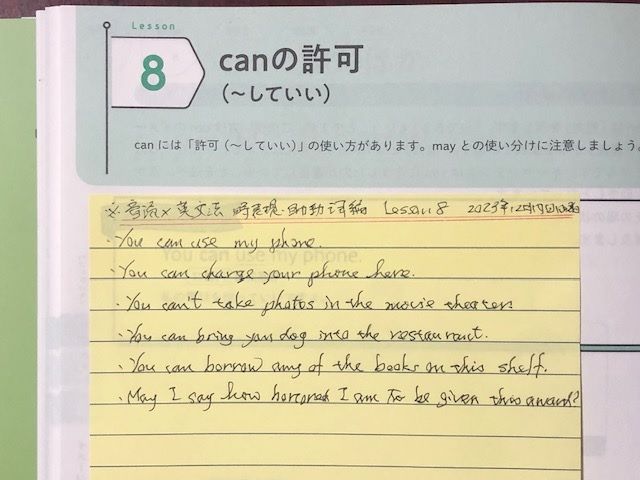 Lesson
8
canの許可
(〜していい)
can には「許可(〜していい)」の使い方があります。may との使い分けに注意しましょう。
音読×英文法 時制・助動詞編 Lesson 8 2023年12月17日
・You can use my phone.
・You can charge your phone here.
・You can't take photos in the movie theater.
・You can bring your dog into the restaurant.
・You can borrow any of the books on this shelf.
・May I say how honored I am to be given this award?